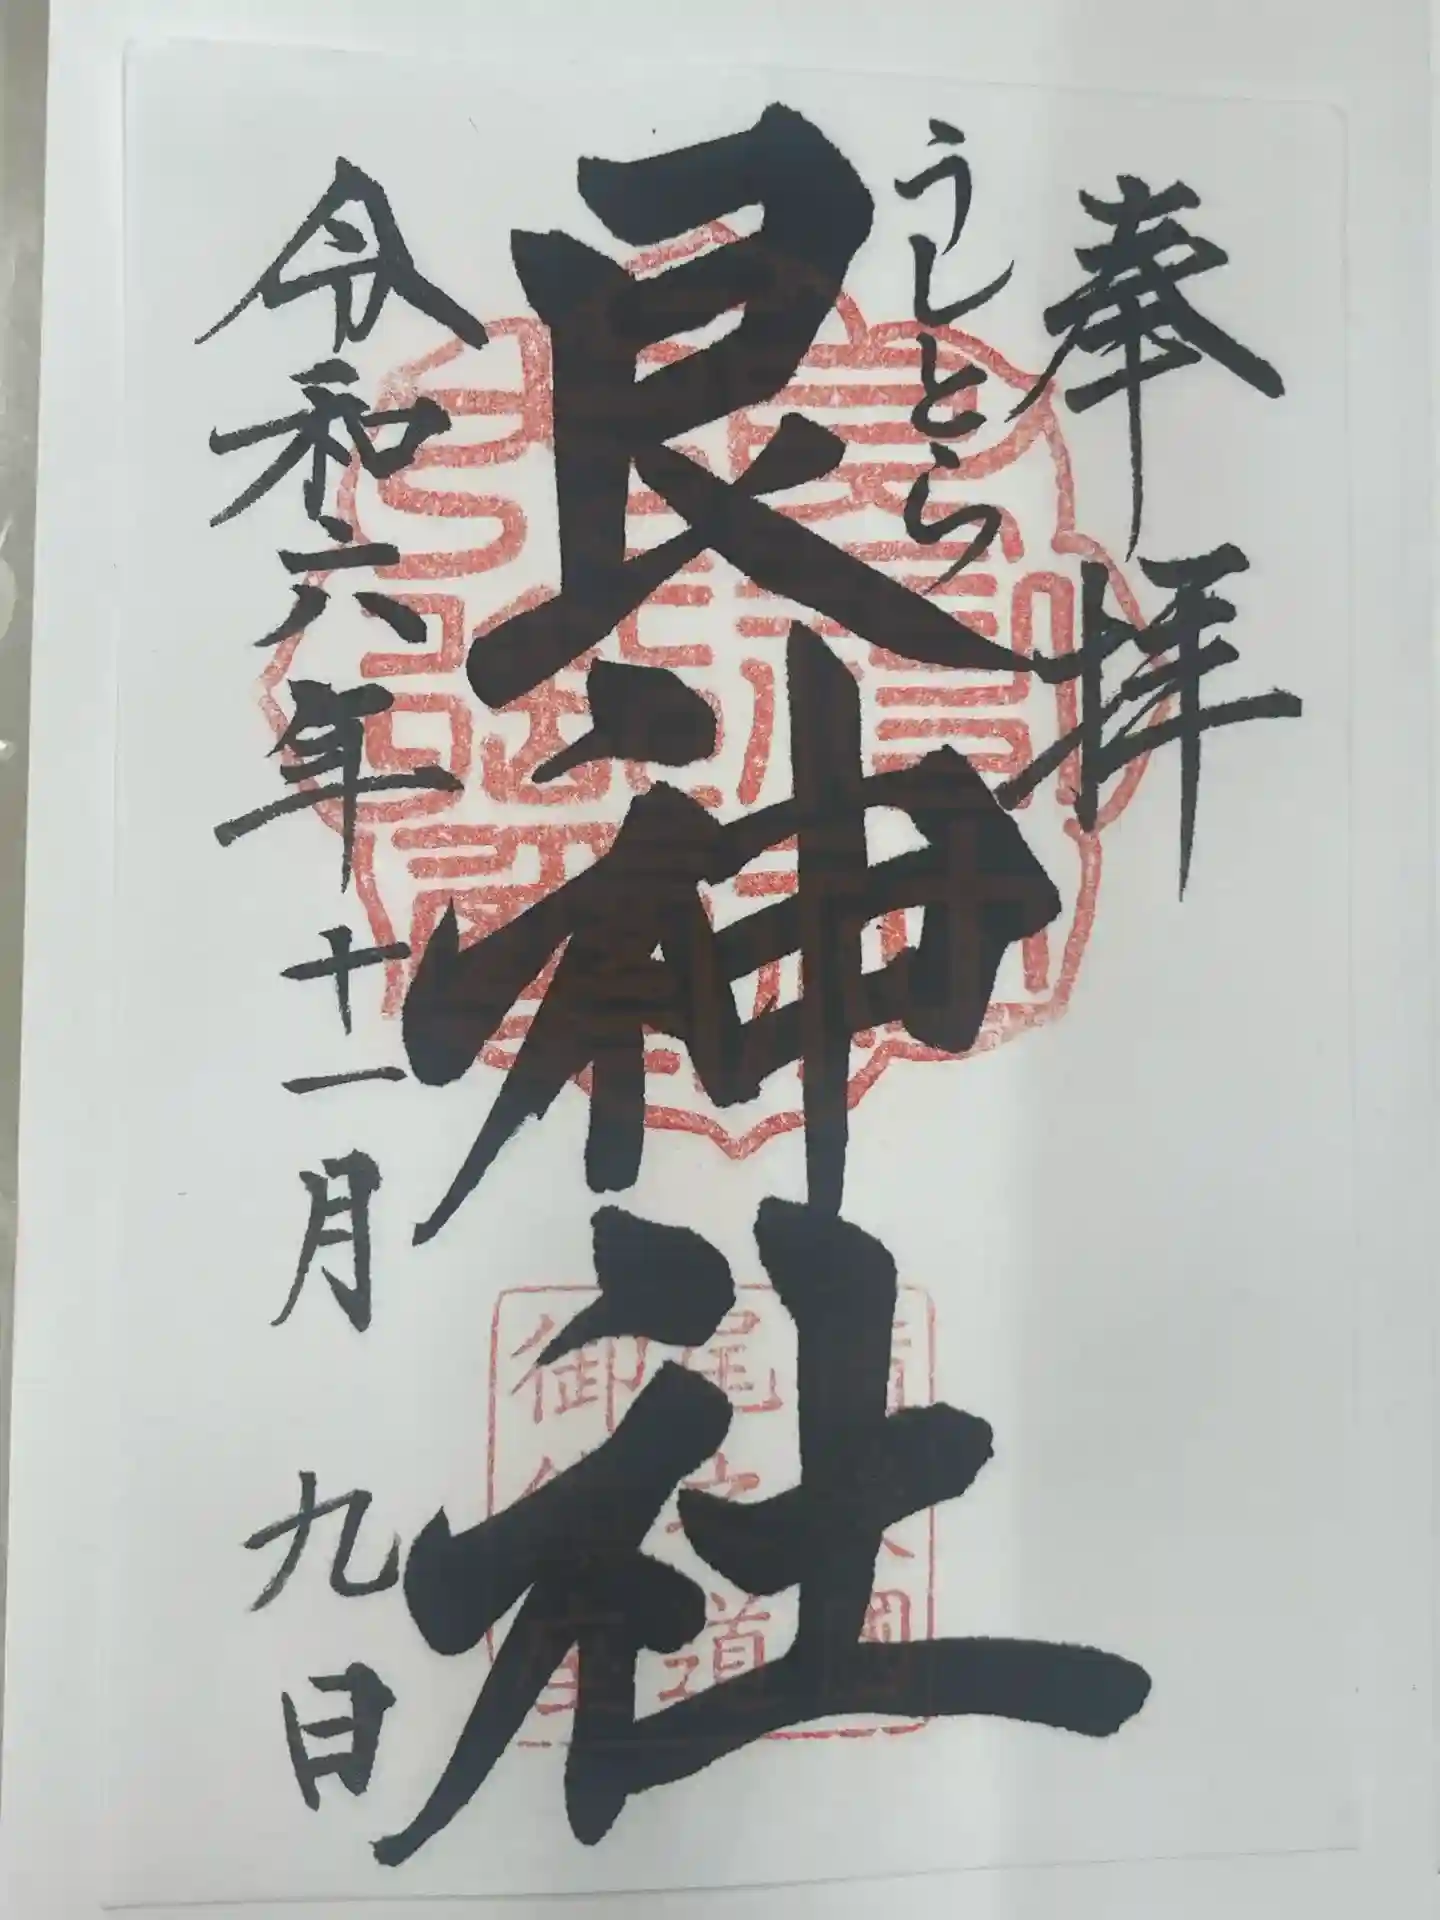 奉拝
うしとら
艮神社
令和六年十一月九日
尾之道